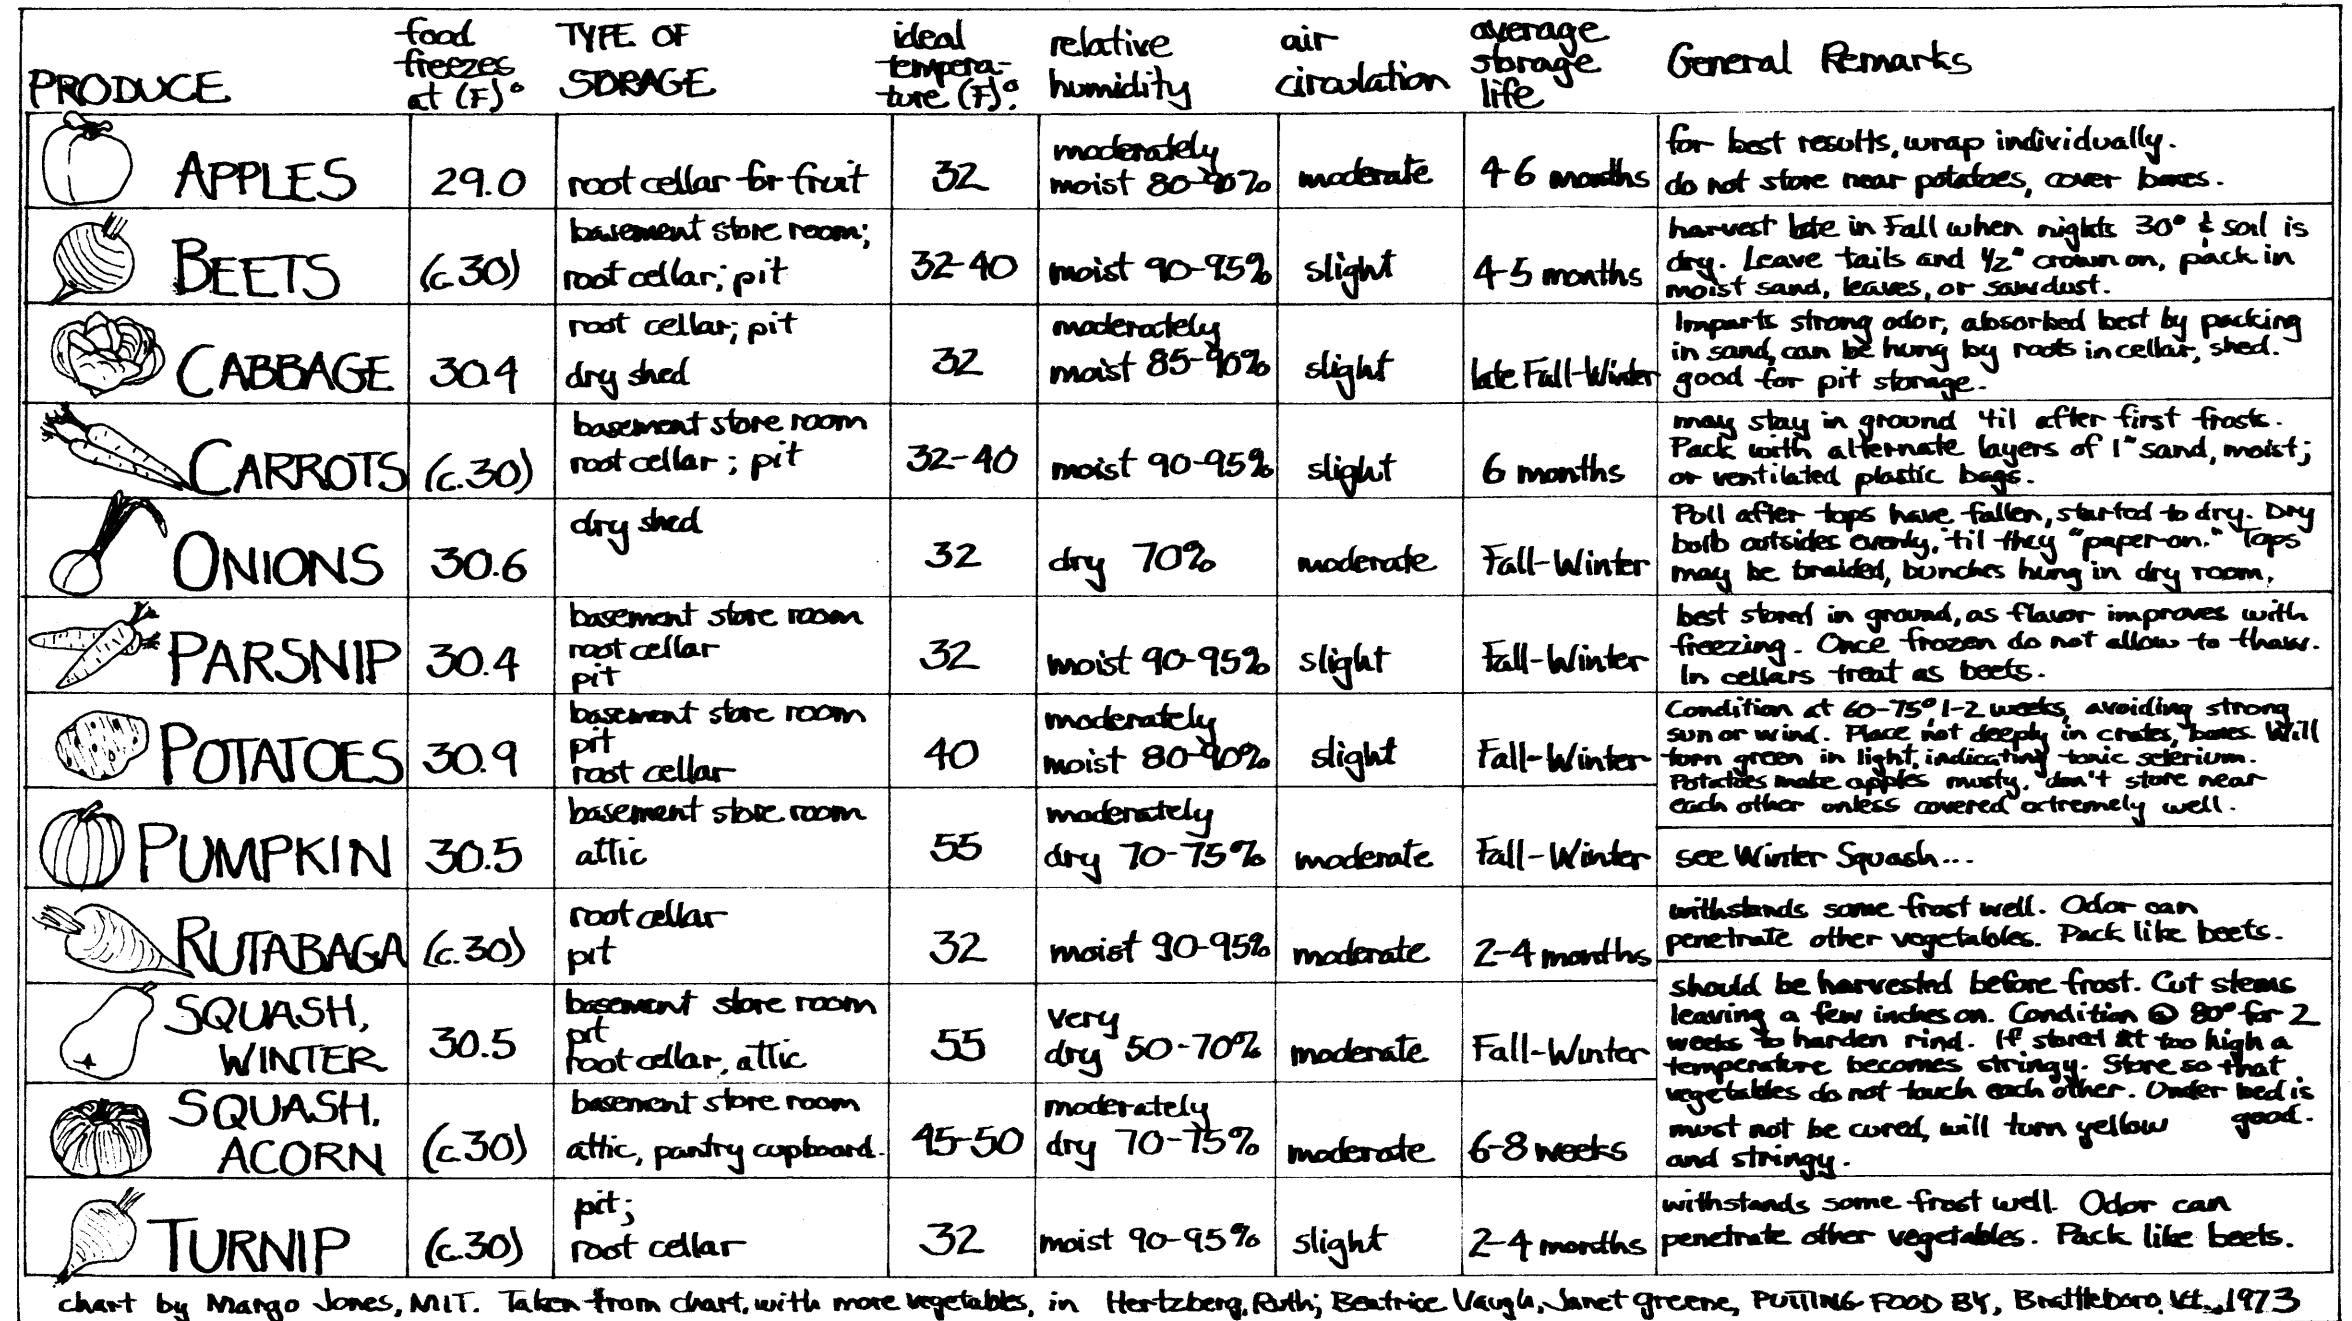 PRODUCE
food freezes at (F)°
TYPE OF STORAGE
ideal tempera-ture (F)°.
relative humidity
air circulation
average storage life
General Remarks
APPLES
29.0
root cellar for fruit
32
moderately
moist 80-90%
moderate
4-6 months
for best results, wrap individually.
do not store near potatoes, cover boxes.
BEETS
(c.30)
basement store room;
root cellar; pit
32-40
moist 90-95%
slight
4-5 months
harvest late in Fall when nights 30° & soil is
dry. Leave tails and 1/2" crown on, pack in
moist sand, leaves, or sawdust.
CABBAGE
30.4
root cellar; pit
dry shed
32
moderately
moist 85-90%
slight
late Fall-Winter
Imparts strong odor, absorbed best by packing
in sand, can be hung by roots in cellar, shed.
good for pit storage.
CARROTS
(c.30)
basement store room
root cellar; pit
32-40
moist 90-95%
slight
6 months
may stay in ground 'til after first frosts.
Pack with alternate layers of 1" sand, moist;
or ventilated plastic bags.
ONIONS
30.6
dry shed
32
dry 70%
moderate
Fall-Winter
Pull after tops have fallen, started to dry. Dry
bulb outsides evenly, 'til they "paper-on." Tops
may be braided, bunches hung in dry room.
PARSNIP
30.4
basement store room
root cellar
pit
32
moist 90-95%
slight
Fall-Winter
best stored in ground, as flavor improves with
freezing. Once frozen do not allow to thaw.
In cellars treat as beets.
POTATOES
30.9
basement store room
pit
root cellar
40
moderately
moist 80-90%
slight
Fall-Winter
Condition at 60-75° 1-2 weeks, avoiding strong
sun or wind. Place not deeply in crates, boxes. Will
turn green in light, indicating toxic selerium.
Potatoes make apples musty, don't store near
each other unless covered extremely well.
PUMPKIN
30.5
basement store room
attic
55
moderately
dry 70-75%
moderate
Fall-Winter
see Winter Squash...
RUTABAGA
(c.30)
root cellar
pit
32
moist 90-95%
moderate
2-4 months
withstands some frost well. Odor can
penetrate other vegetables. Pack like beets.
SQUASH,
WINTER
30.5
basement store room
pit
root cellar, attic
55
very
dry 50-70%
moderate
Fall-Winter
should be harvested before frost. Cut stems
leaving a few inches on. Condition @ 80° for 2
weeks to harden rind. If stored at too high a
temperature becomes stringy. Store so that
vegetables do not touch each other. Under bed is
good.
SQUASH,
ACORN
(c.30)
basement store room
attic, pantry cupboard.
45-50
moderately
dry 70-75%
moderate
6-8 weeks
must not be cured, will turn yellow
and stringy.
TURNIP
(c.30)
pit;
root cellar
32
moist 90-95%
slight
2-4 months
withstands some frost well. Odor can
penetrate other vegetables. Pack like beets.
chart by Margo Jones, MIT. Taken from chart, with more vegetables, in Hertzberg, Ruth; Beatrice Vaugh, Janet Greene, PUTTING FOOD BY, Brattleboro, Vt., 1973